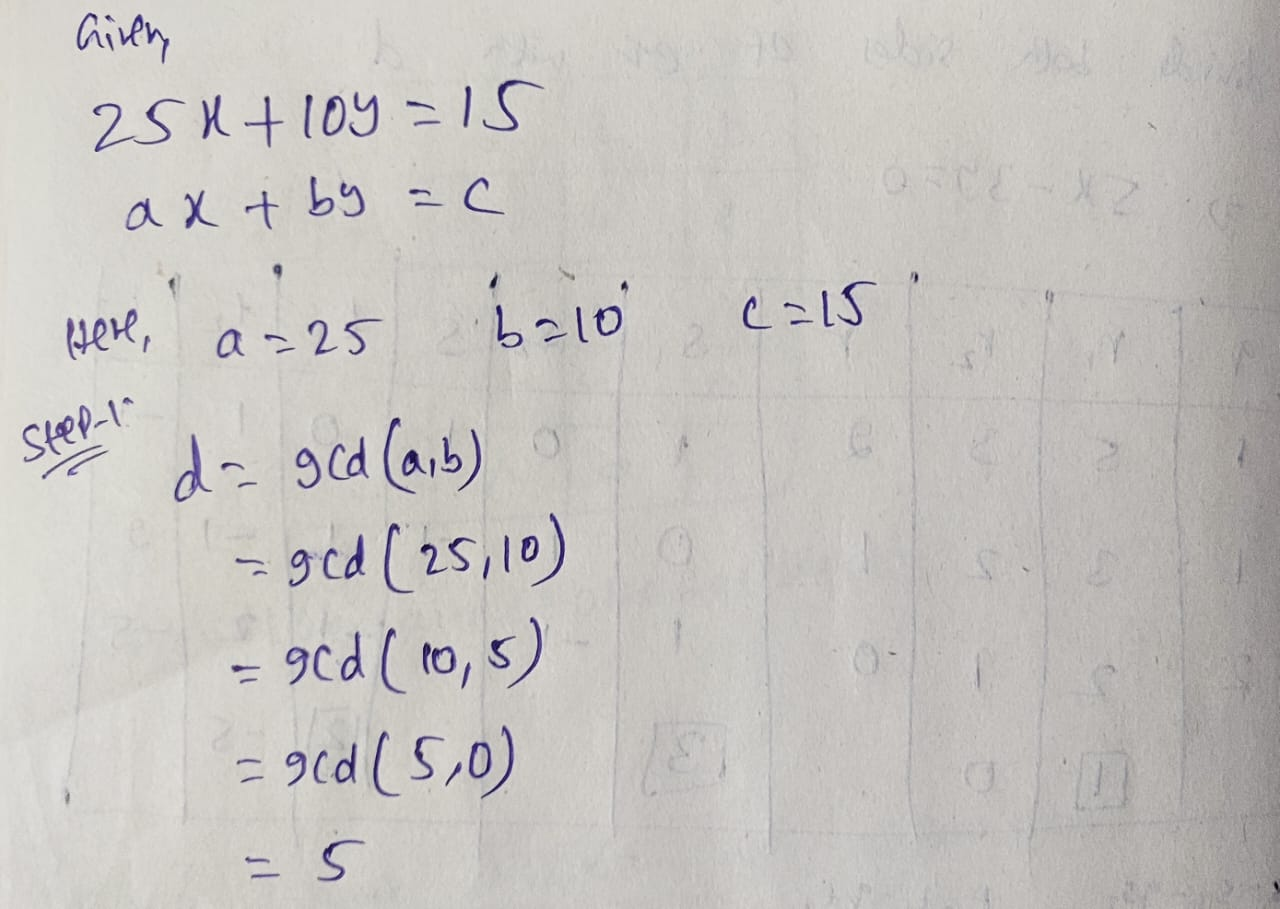 Given,
25x + 10y = 15
ax + by = c
Here, a = 25 b = 10 c = 15
Step-1:
d = gcd(a,b)
= gcd(25,10)
= gcd(10,5)
= gcd(5,0)
= 5